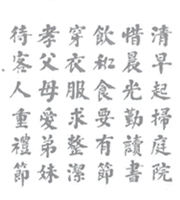 清早起掃庭院
惜晨光勤讀書
飲和食要有節
穿衣服求整潔
孝父母愛弟妹
待客人重禮節